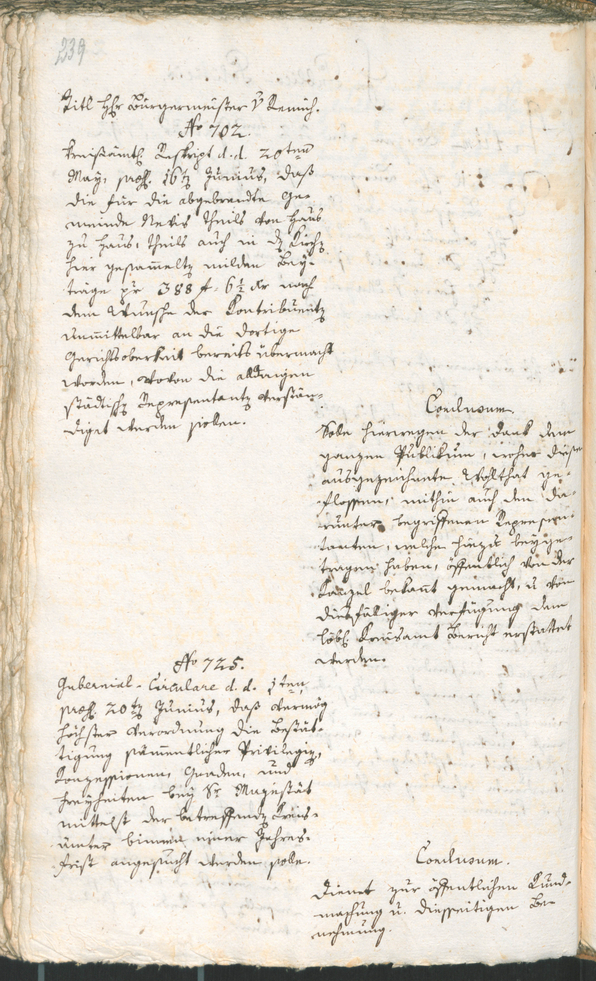 239
Titl Hr Bürgermeister v Remich.
No 702.
Kreisämtl Reskript d. d. 20ten
May, præs. 16t Junius, daß
die für die abgebrandte Ge-
meinde Nevis theils von Haus
zu Haus, theils auch in d Kirch
hier gesammelte milden Bey-
träge pr 388 f. 6½ xr nach
dem Wunsche der Kontribuent
unmittelbar an die dortige
Gerichtsobrigkeit bereits übermacht
worden, wovon die allfaligen
städtisch Representant verstän-
diget werden sollen.
Conclusum.
Solle hierwegen der Dank dem
ganzen Publikum, woher diese
ausgezeichnete Wohlthat ge-
flossen, mithin auch den da-
runter begriffenen Represen-
tanten, welche hiezu beyge-
tragen haben, öffentlich von der
Kanzel bekant gemacht, u von
diesfälliger Verfügung dem
löbl Kreisamt Bericht erstattet
werden.
No 725.
Gubernial-Circulare d. d. 1ten,
præs. 20t Junius, daß vermög
höchster Verordnung die Bestät-
tigung sämmentlicher Privilegien,
Konzessionen, Gnaden, und
Freyheiten bey Sr Majestät
mittelst der betreffend Kreis-
ämter binnen einer Jahres-
frist angesucht werden solle.
Conclusum.
Dienet zur öffentlichen Kund-
machung u. diesseitigen Be-
nehmung.